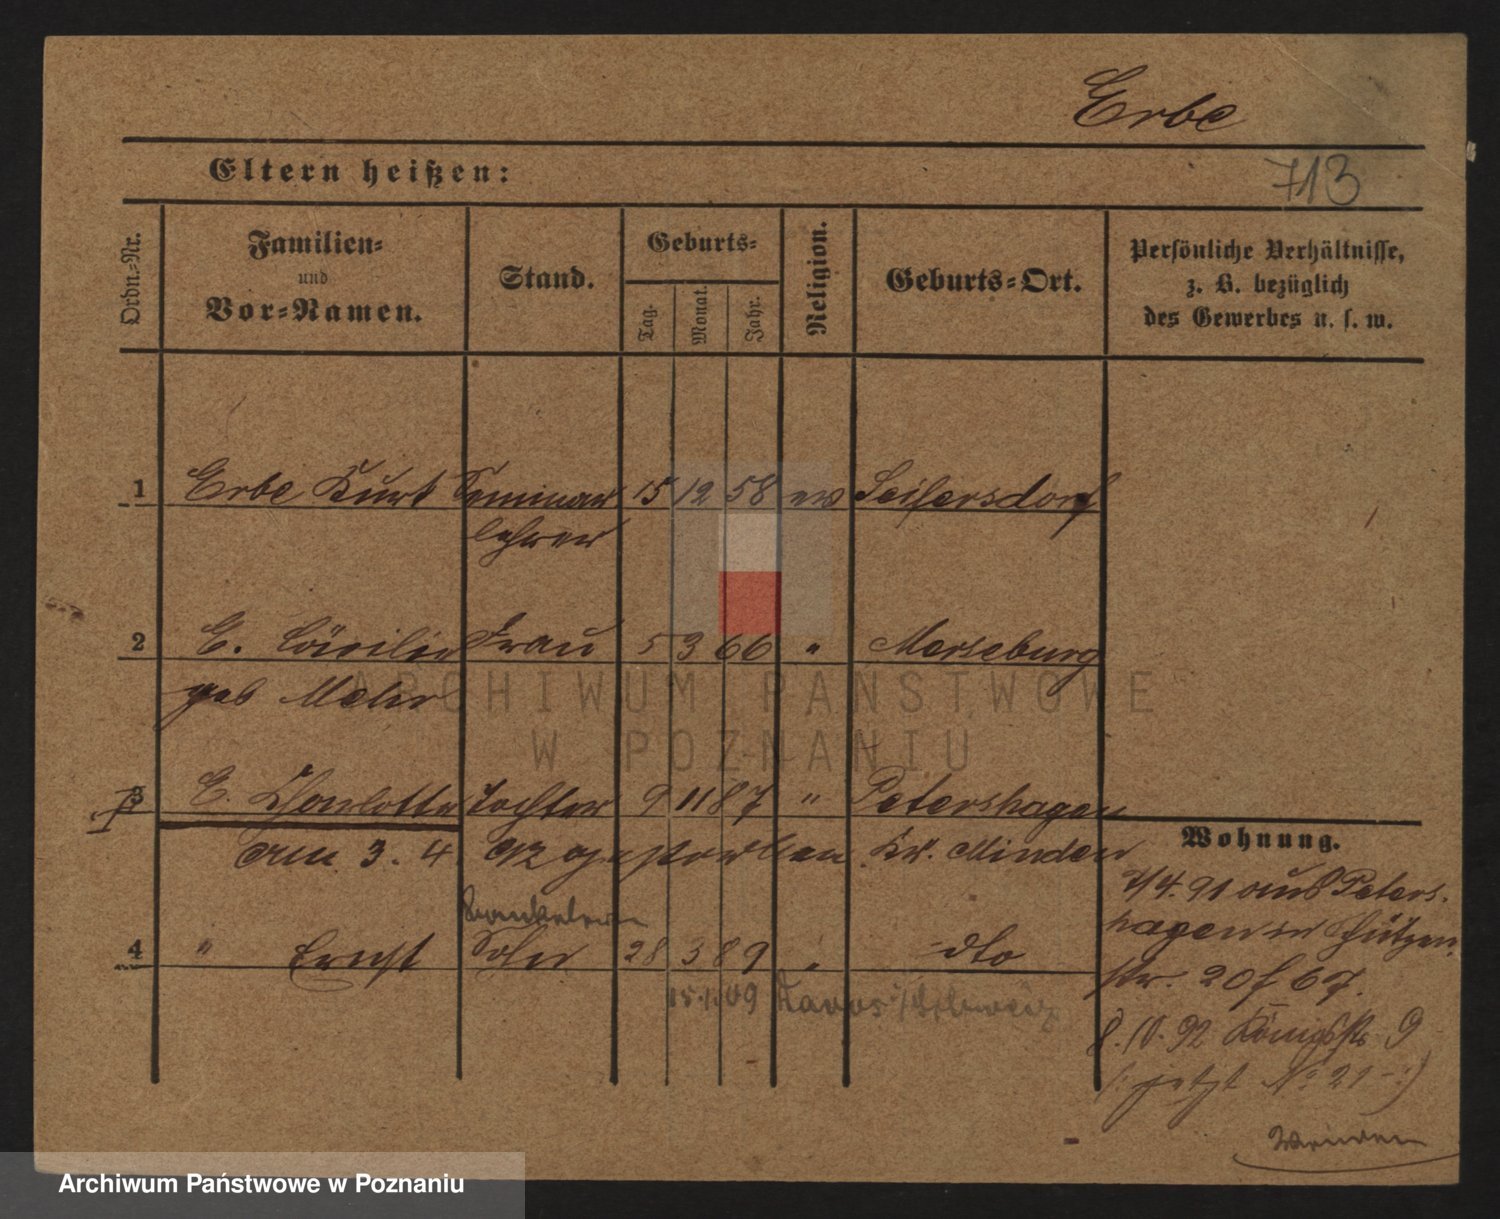 Erbe
Eltern heißen:
713
Ordn.-Nr.
Familien-
und
Vor-Namen.
Stand.
Geburts-
Tag.
Monat.
Jahr.
Religion.
Geburts-Ort.
Persönliche Verhältnisse,
z. B. bezüglich
des Gewerbes u. s. w.
1 Erbe Kurt Seminar 15 12 58 ev Seifersdorf
lehrer
2 E. Cäcilie Frau 5 3 66 " Merseburg
geb
ARCHIWUM PAŃSTWOWE
W POZNANIU
3 E. Charlotte Tochter 9 11 87 " Petershagen
am 3. 4. 92 gestorben Kr. Minden
Wohnung.
1/4. 91 aus Peters-
hagen Schützen
4 " Ernst Sohn 28 3 89 " dto
str. 20 f 67.
15.1.09 Davos /Schweiz
8. 10. 92 Königsstr 9
(: jetzt No 21 :)
Archiwum Państwowe w Poznaniu